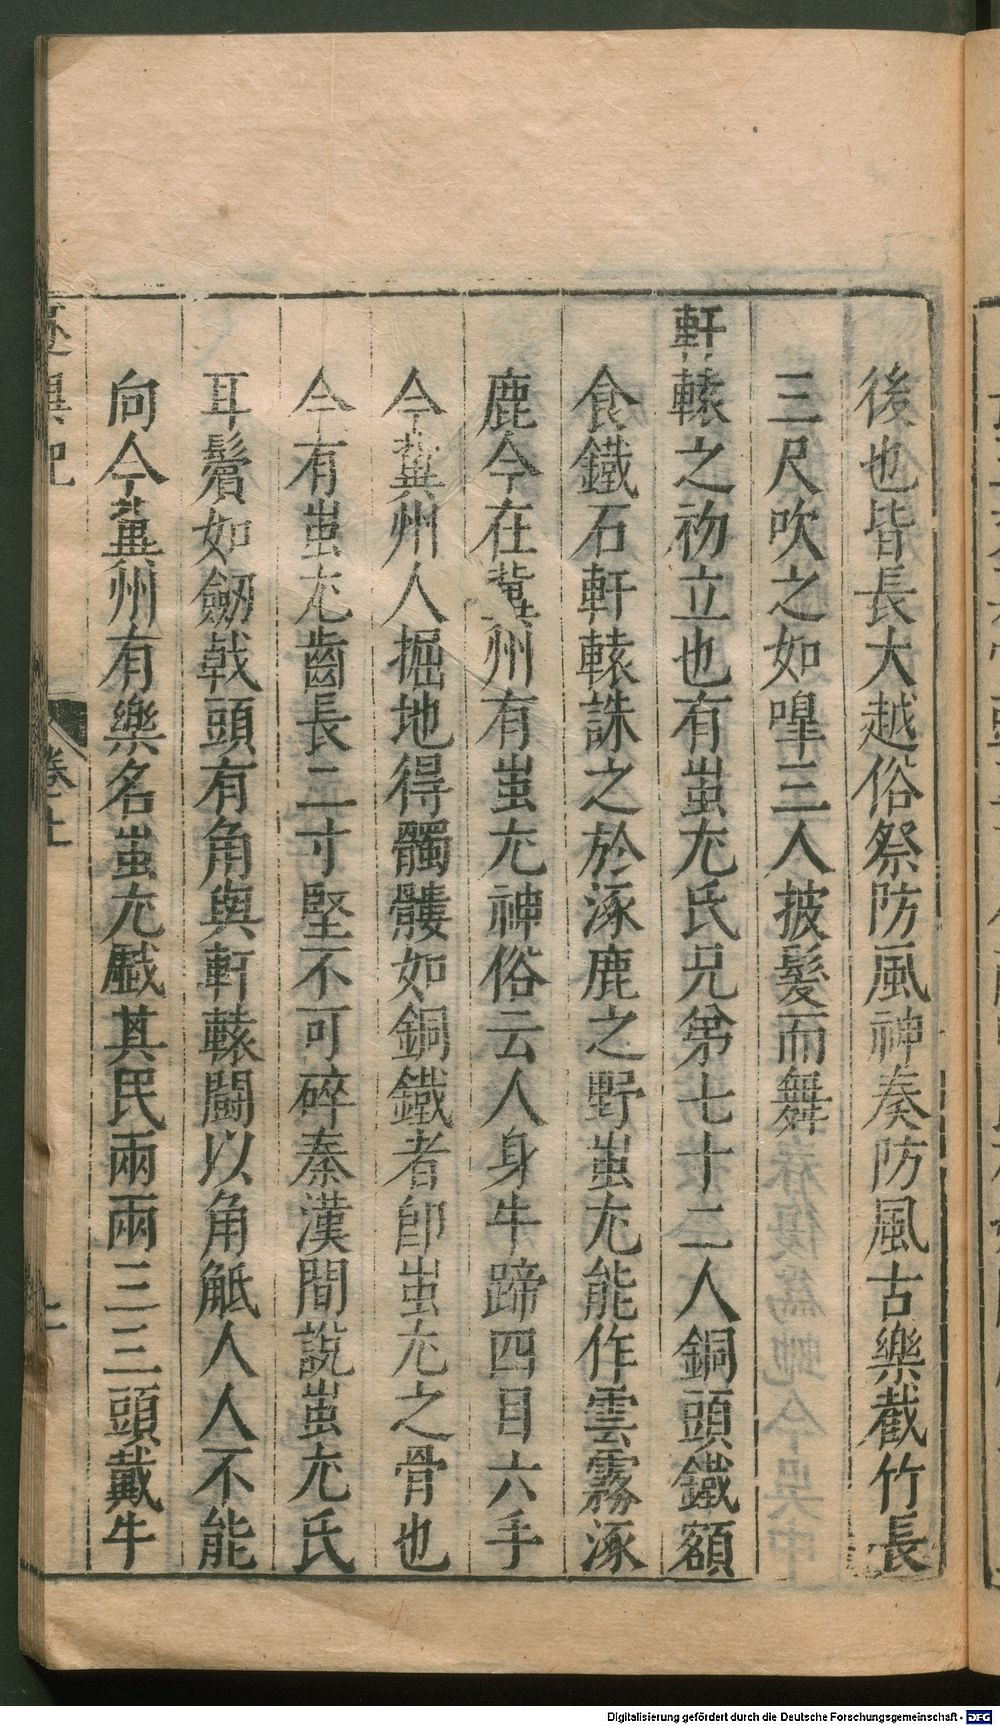 後也皆長大越俗祭防風神奏防風古樂截竹長
三尺吹之如嘷三人披髮而舞
軒轅之初立也有蚩尤氏兄弟七十二人銅頭鐵額
食鐵石軒轅誅之於涿鹿之野蚩尤能作雲霧涿
鹿今在冀州有蚩尤神俗云人身牛蹄四目六手
今冀州人掘地得髑髏如銅鐵者卽蚩尤之骨也
今有蚩尤齒長二寸堅不可碎秦漢間說蚩尤氏
耳鬢如劒戟頭有角與軒轅鬭以角觝人人不能
向今冀州有樂名蚩尤戲其民兩兩三三頭戴牛
述異記
卷上
Digitalisierung gefördert durch die Deutsche Forschungsgemeinschaft - DFG